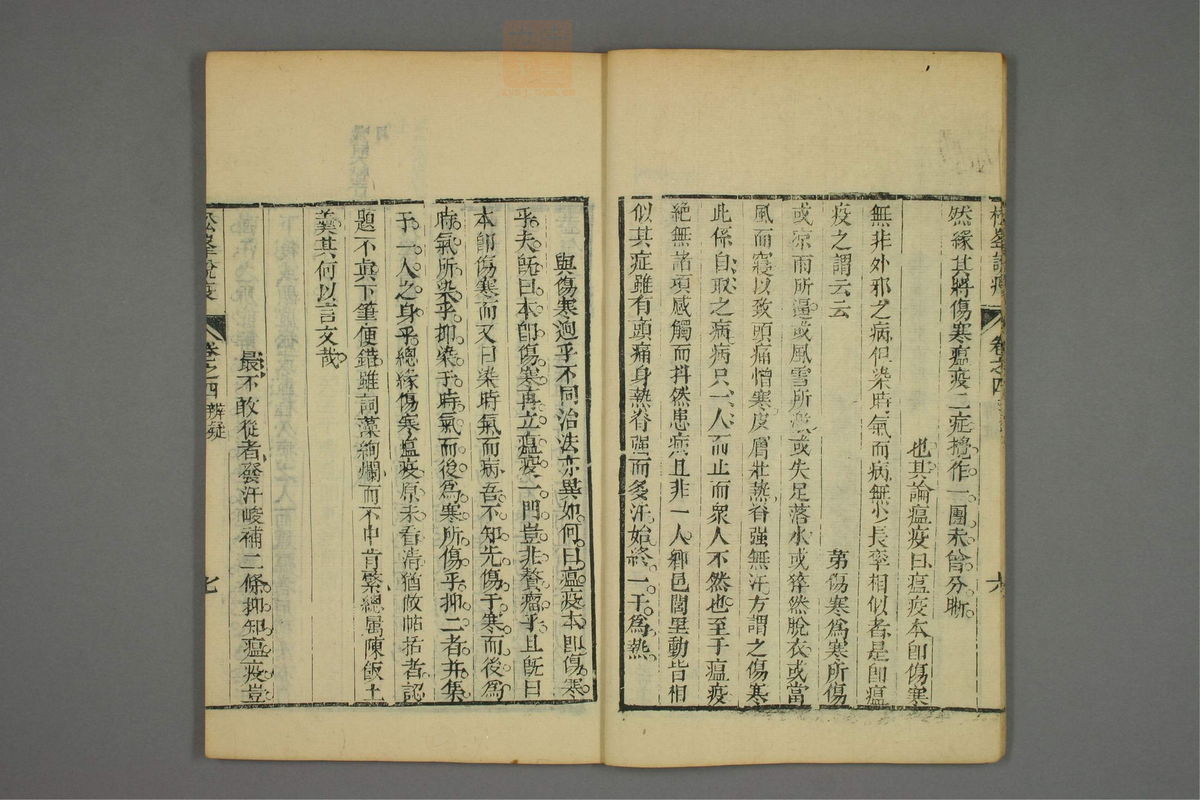 松峯說疫
卷之四
六
然緣其將傷寒瘟疫二症攪作一團未曾分晣
也其論瘟疫曰瘟疫本卽傷寒
無非外邪之病但染時氣而病無少長率相似者是卽瘟
疫之謂云云
第傷寒爲寒所傷
或凉雨所逼或風雪所激或失足落水或猝然脫衣或當
風而寢以致頭痛憎寒皮膚壯熱脊强無汗方謂之傷寒
此係自取之病病只一人而止而衆人不然也至于瘟疫
絶無諸項感觸而抖然患病且非一人鄉邑閭里動皆相
似其症雖有頭痛身熱脊强而多汗始終一于爲熱
與傷寒逈乎不同治法亦異如何曰瘟疫本卽傷寒
乎夫旣曰本卽傷寒再立瘟疫一門豈非贅瘤乎且旣曰
本卽傷寒而又曰染時氣而病吾不知先傷于寒而後爲
時氣所染乎抑染于時氣而後爲寒所傷乎抑二者并集
于一人之身乎總緣傷寒瘟疫原未看淸猶做帖括者認
題不眞下筆便錯雖詞藻絢爛而不中肯綮總屬陳飯土
羹其何以言文哉
最不敢從者發汗峻補二條抑知瘟疫豈
松峯說疫
卷之四
辨疑
七